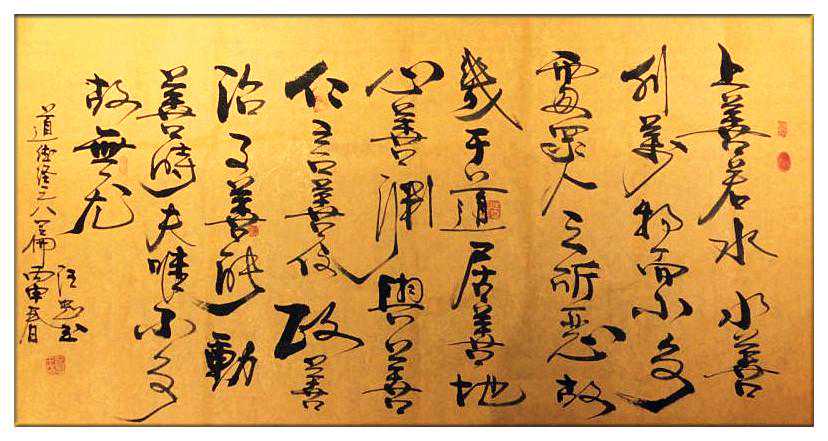 上善若水水善
利萬物而不爭
處眾人之所惡故
幾于道居善地
心善淵與善
仁言善信政善
治事善能動
善時夫唯不爭
故無尤
道德經之八篇丙申春月